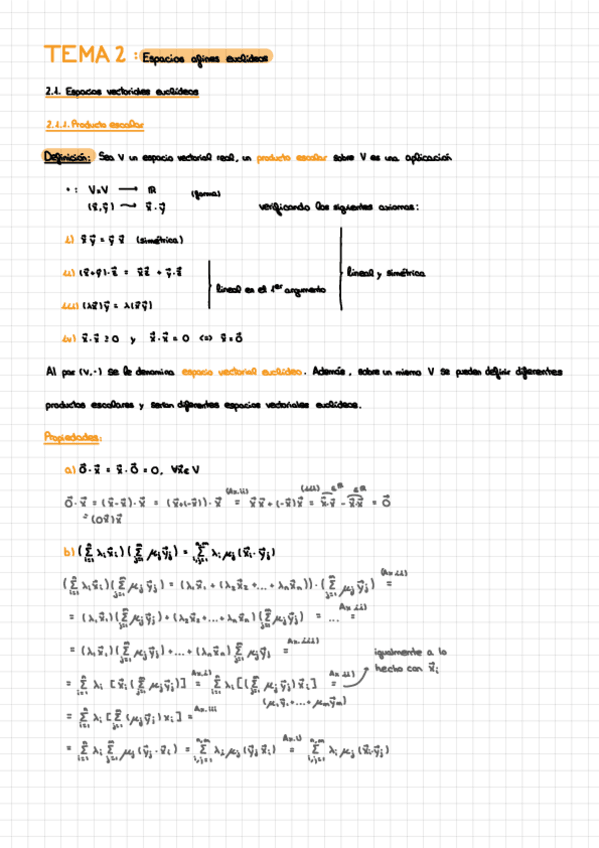 TEMA 2: Espacios afines euclídeos
2.1. Espacios vectoriales euclídeos
2.1.1. Producto escalar
Definición: Sea V un espacio vectorial real, un producto escalar sobre V es una aplicación
• : V×V ⟶ ℝ (forma)
(x⃗,y⃗) ⟶ x⃗·y⃗ verificando los siguientes axiomas:
i) x⃗ y⃗ = y⃗ x⃗ (simétrica)
ii) (x⃗+y⃗)·z⃗ = x⃗z⃗ + y⃗·z⃗
lineal en el 1er argumento
lineal y simétrica
iii) (λx⃗)y⃗ = λ(x⃗y⃗)
iv) x⃗·x⃗ ≥ 0 y x⃗·x⃗ = 0 <=> x⃗ = 0⃗
Al par (V,·) se le denomina espacio vectorial euclídeo. Además, sobre un mismo V se pueden definir diferentes
productos escalares y serían diferentes espacios vectoriales euclídeos.
Propiedades:
a) 0⃗·x⃗ = x⃗·0⃗ = 0, ∀x⃗∈V
0⃗·x⃗ = (x⃗-x⃗)·x⃗ = (x⃗+(-x⃗))·x⃗ =(Ax.ii) x⃗x⃗ + (-x⃗)x⃗ =(iii) x⃗·x⃗ - x⃗·x⃗ = 0⃗
= (0x⃗)x⃗
b) (∑ᵢ₌₁ⁿ λᵢx⃗ᵢ)(∑ⱼ₌₁ᵐ μⱼy⃗ⱼ) = ∑ᵢ,ⱼ₌₁ⁿ,ᵐ λᵢμⱼ(x⃗ᵢ·y⃗ⱼ)
(∑ᵢ₌₁ⁿ λᵢx⃗ᵢ)(∑ⱼ₌₁ᵐ μⱼy⃗ⱼ) = (λ₁x⃗₁ + (λ₂x⃗₂ + ... + λₙx⃗ₙ))·(∑ⱼ₌₁ᵐ μⱼy⃗ⱼ) =(Ax.ii)
= (λ₁x⃗₁)(∑ⱼ₌₁ᵐ μⱼy⃗ⱼ) + (λ₂x⃗₂ + ... + λₙx⃗ₙ)(∑ⱼ₌₁ᵐ μⱼy⃗ⱼ) = ... =Ax.ii)
= (λ₁x⃗₁)(∑ⱼ₌₁ᵐ μⱼy⃗ⱼ) + ... + (λₙx⃗ₙ) ∑ⱼ₌₁ᵐ μⱼy⃗ⱼ =Ax.iii)
igualmente a lo
hecho con x⃗ᵢ
= ∑ᵢ₌₁ⁿ λᵢ [x⃗ᵢ(∑ⱼ₌₁ᵐ μⱼy⃗ⱼ)] =Ax.i) ∑ᵢ₌₁ⁿ λᵢ [(∑ⱼ₌₁ᵐ μⱼy⃗ⱼ)x⃗ᵢ] =Ax.ii)
(μ₁y⃗₁ + ... + μₘy⃗ₘ)
= ∑ᵢ₌₁ⁿ λᵢ [∑ⱼ₌₁ᵐ (μⱼy⃗ⱼ)xᵢ] =Ax.iii
= ∑ᵢ₌₁ⁿ λᵢ ∑ⱼ₌₁ᵐ μⱼ(y⃗ⱼ·x⃗ᵢ) = ∑ᵢ,ⱼ₌₁ⁿ,ᵐ λᵢμⱼ(y⃗ⱼx⃗ᵢ) =Ax.i) ∑ᵢ,ⱼ₌₁ⁿ,ᵐ λᵢμⱼ(x⃗ᵢ·y⃗ⱼ)